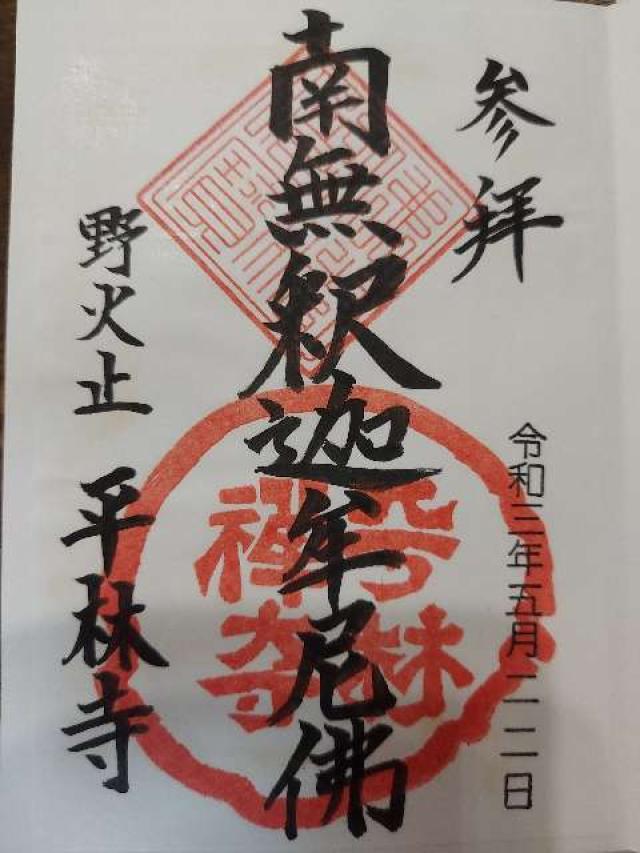 参拝
令和三年五月二二日
南無釈迦牟尼佛
野火止 平林寺
平林
禅寺